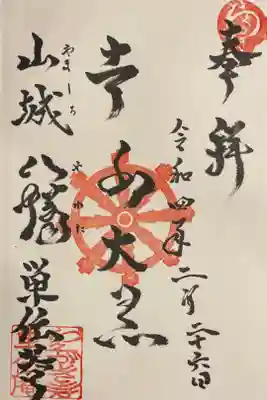 奉拝
令和四年二月二十六日
大黒
やましろ やわた
山城八幡 単伝菴